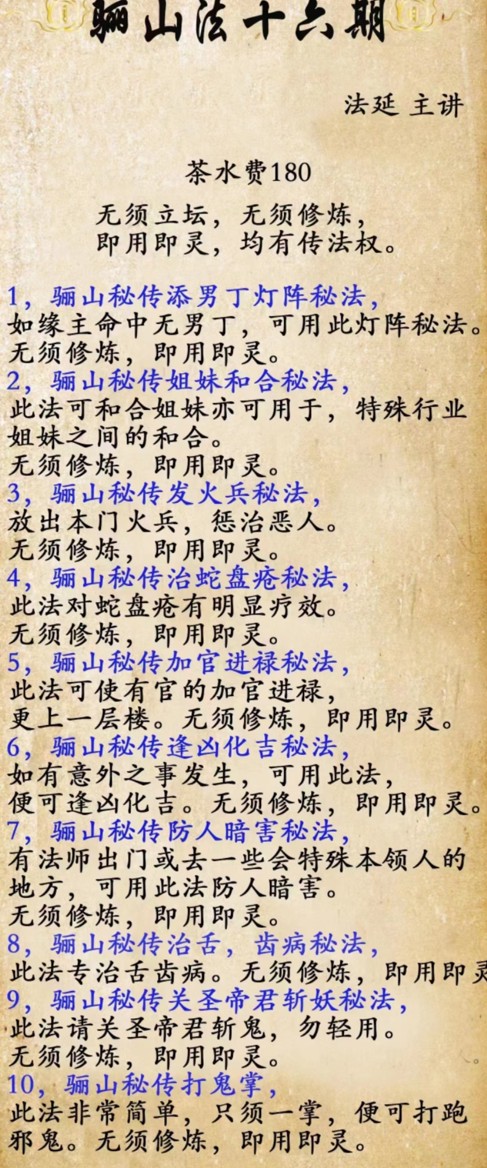 骊山法十六期
法延 主讲
茶水费180
无须立坛，无须修炼，
即用即灵，均有传法权。
1，骊山秘传添男丁灯阵秘法，
如缘主命中无男丁，可用此灯阵秘法。
无须修炼，即用即灵。
2，骊山秘传姐妹和合秘法，
此法可和合姐妹亦可用于，特殊行业
姐妹之间的和合。
无须修炼，即用即灵。
3，骊山秘传发火兵秘法，
放出本门火兵，惩治恶人。
无须修炼，即用即灵。
4，骊山秘传治蛇盘疮秘法，
此法对蛇盘疮有明显疗效。
无须修炼，即用即灵。
5，骊山秘传加官进禄秘法，
此法可使有官的加官进禄，
更上一层楼。无须修炼，即用即灵。
6，骊山秘传逢凶化吉秘法，
如有意外之事发生，可用此法，
便可逢凶化吉。无须修炼，即用即灵。
7，骊山秘传防人暗害秘法，
有法师出门或去一些会特殊本领人的
地方，可用此法防人暗害。
无须修炼，即用即灵。
8，骊山秘传治舌，齿病秘法，
此法专治舌齿病。无须修炼，即用即灵
9，骊山秘传关圣帝君斩妖秘法，
此法请关圣帝君斩鬼，勿轻用。
无须修炼，即用即灵。
10，骊山秘传打鬼掌，
此法非常简单，只须一掌，便可打跑
邪鬼。无须修炼，即用即灵。